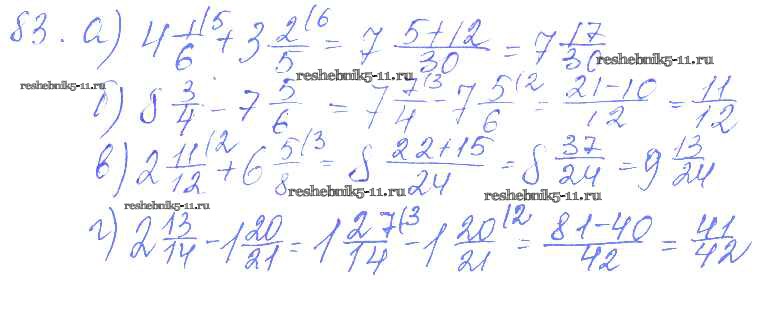 83. а) 4 1/6 (5 + 3 2/5 (6 = 7 (5+12)/30 = 7 17/30
reshebnik5-11.ru
reshebnik5-11.ru
б) 8 3/4 - 7 5/6 = 7 7/4 (3 - 7 5/6 (2 = (21-10)/12 = 11/12
в) 2 11/12 (2 + 6 5/8 (3 = 8 (22+15)/24 = 8 37/24 = 9 13/24
reshebnik5-11.ru
reshebnik5-11.ru
reshebnik5-11.ru
г) 2 13/14 - 1 20/21 = 1 27/14 (3 - 1 20/21 (2 = (81-40)/42 = 41/42